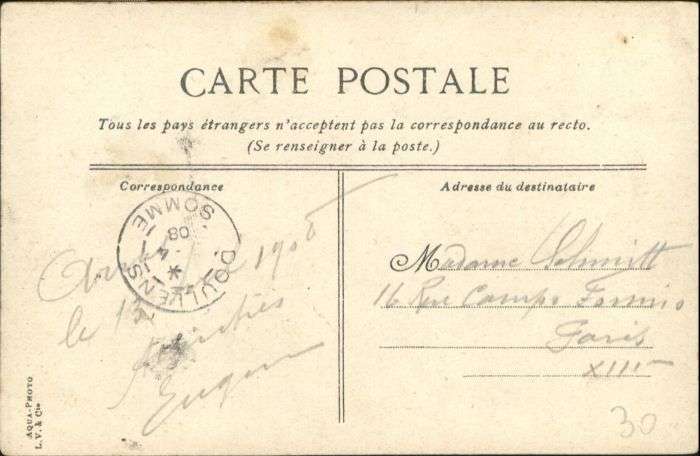 CARTE POSTALE
Tous les pays étrangers n'acceptent pas la correspondance au recto.
(Se renseigner à la poste.)
Correspondance
Adresse du destinataire
DOULLENS
SOMME
08
1908
le 12
Amitiés
Eugen
Madame Schmitt
16 Rue Campo Formio
Paris
XIII
30
AQUA-PHOTO
L. V. & Cie